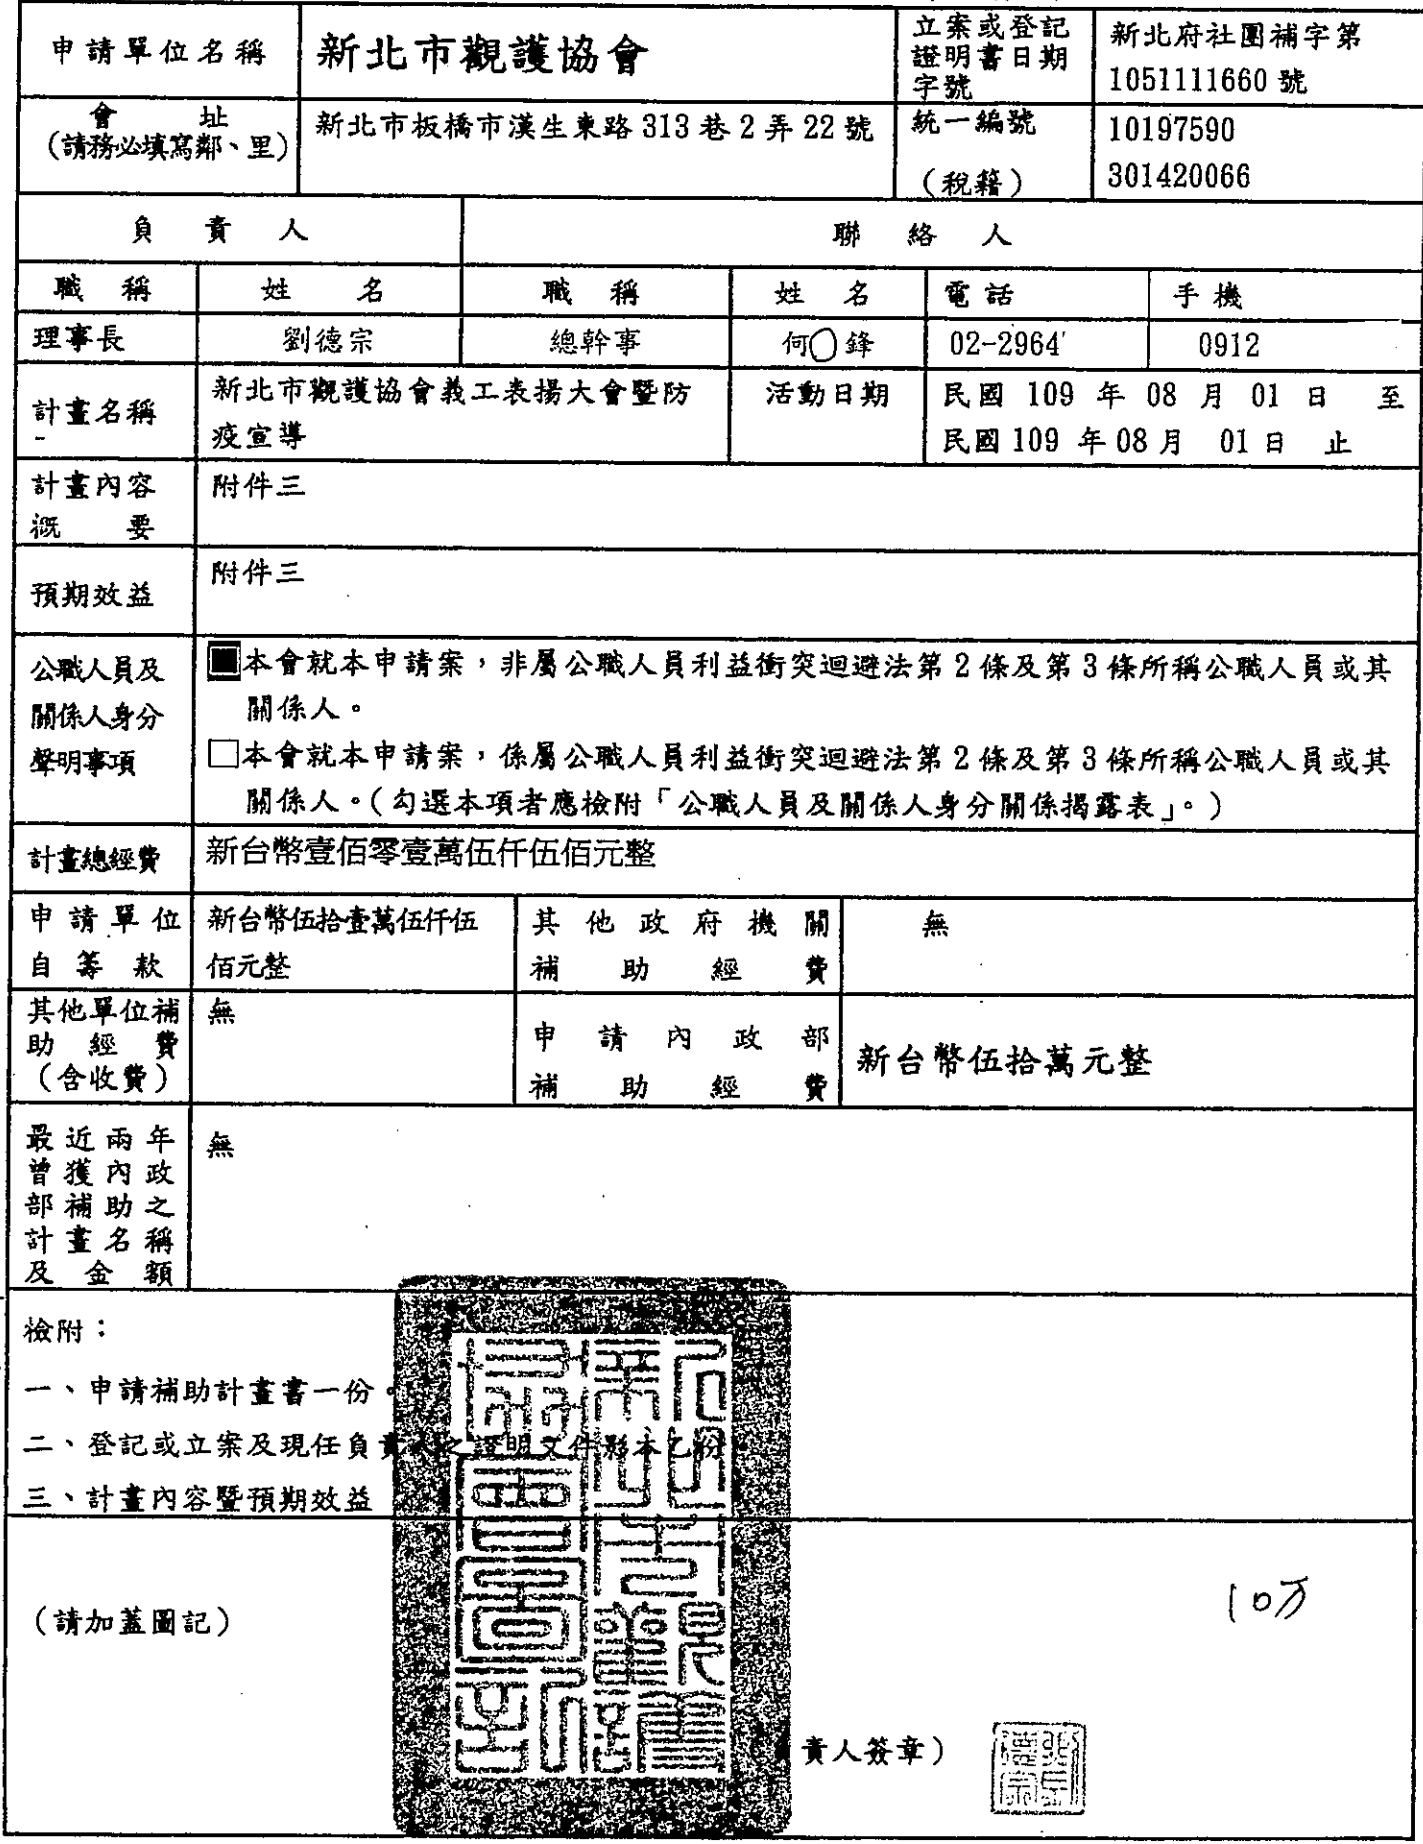 申請單位名稱
新北市觀護協會
立案或登記
證明書日期
字號
新北府社團補字第
1051111660 號
會 址
(請務必填寫鄰、里)
新北市板橋市漢生東路 313 巷 2 弄 22 號
統一編號
(稅籍)
10197590
301420066
負 責 人
聯 絡 人
職 稱
姓 名
職 稱
姓 名
電 話
手 機
理事長
劉德宗
總幹事
何○鋒
02-2964
0912
計畫名稱
新北市觀護協會義工表揚大會暨防
疫宣導
活動日期
民國 109 年 08 月 01 日 至
民國 109 年 08 月 01 日 止
計畫內容
概 要
附件三
預期效益
附件三
公職人員及
關係人身分
聲明事項
■本會就本申請案，非屬公職人員利益衝突迴避法第 2 條及第 3 條所稱公職人員或其
關係人。
□本會就本申請案，係屬公職人員利益衝突迴避法第 2 條及第 3 條所稱公職人員或其
關係人。(勾選本項者應檢附「公職人員及關係人身分關係揭露表」。)
計畫總經費
新台幣壹佰零壹萬伍仟伍佰元整
申請單位
自籌款
新台幣伍拾壹萬伍仟伍
佰元整
其他政府機關
補助經費
無
其他單位補
助經費
(含收費)
無
申請內政部
補助經費
新台幣伍拾萬元整
最近兩年
曾獲內政
部補助之
計畫名稱
及金額
無
檢附：
一、申請補助計畫書一份。
二、登記或立案及現任負責人之證明文件影本乙份
三、計畫內容暨預期效益
(請加蓋圖記)
10万
責人簽章)